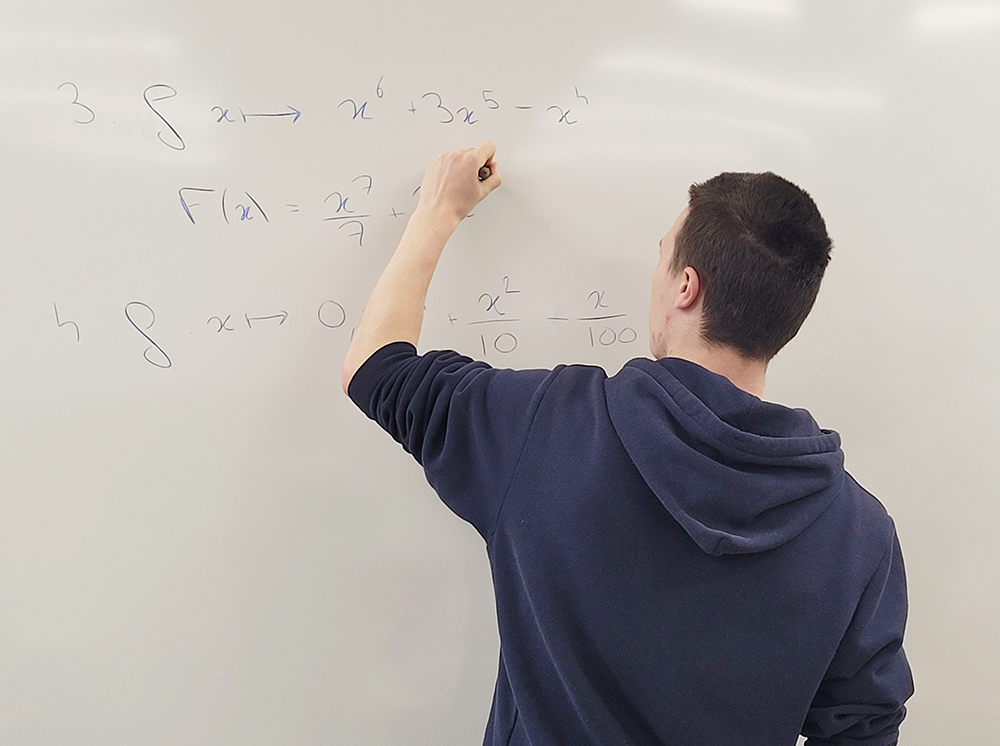 3. f x ↦ x⁶ + 3x⁵ - x⁴
F(x) = x⁷/7 +
4 f x ↦ 0, + x²/10 - x/100